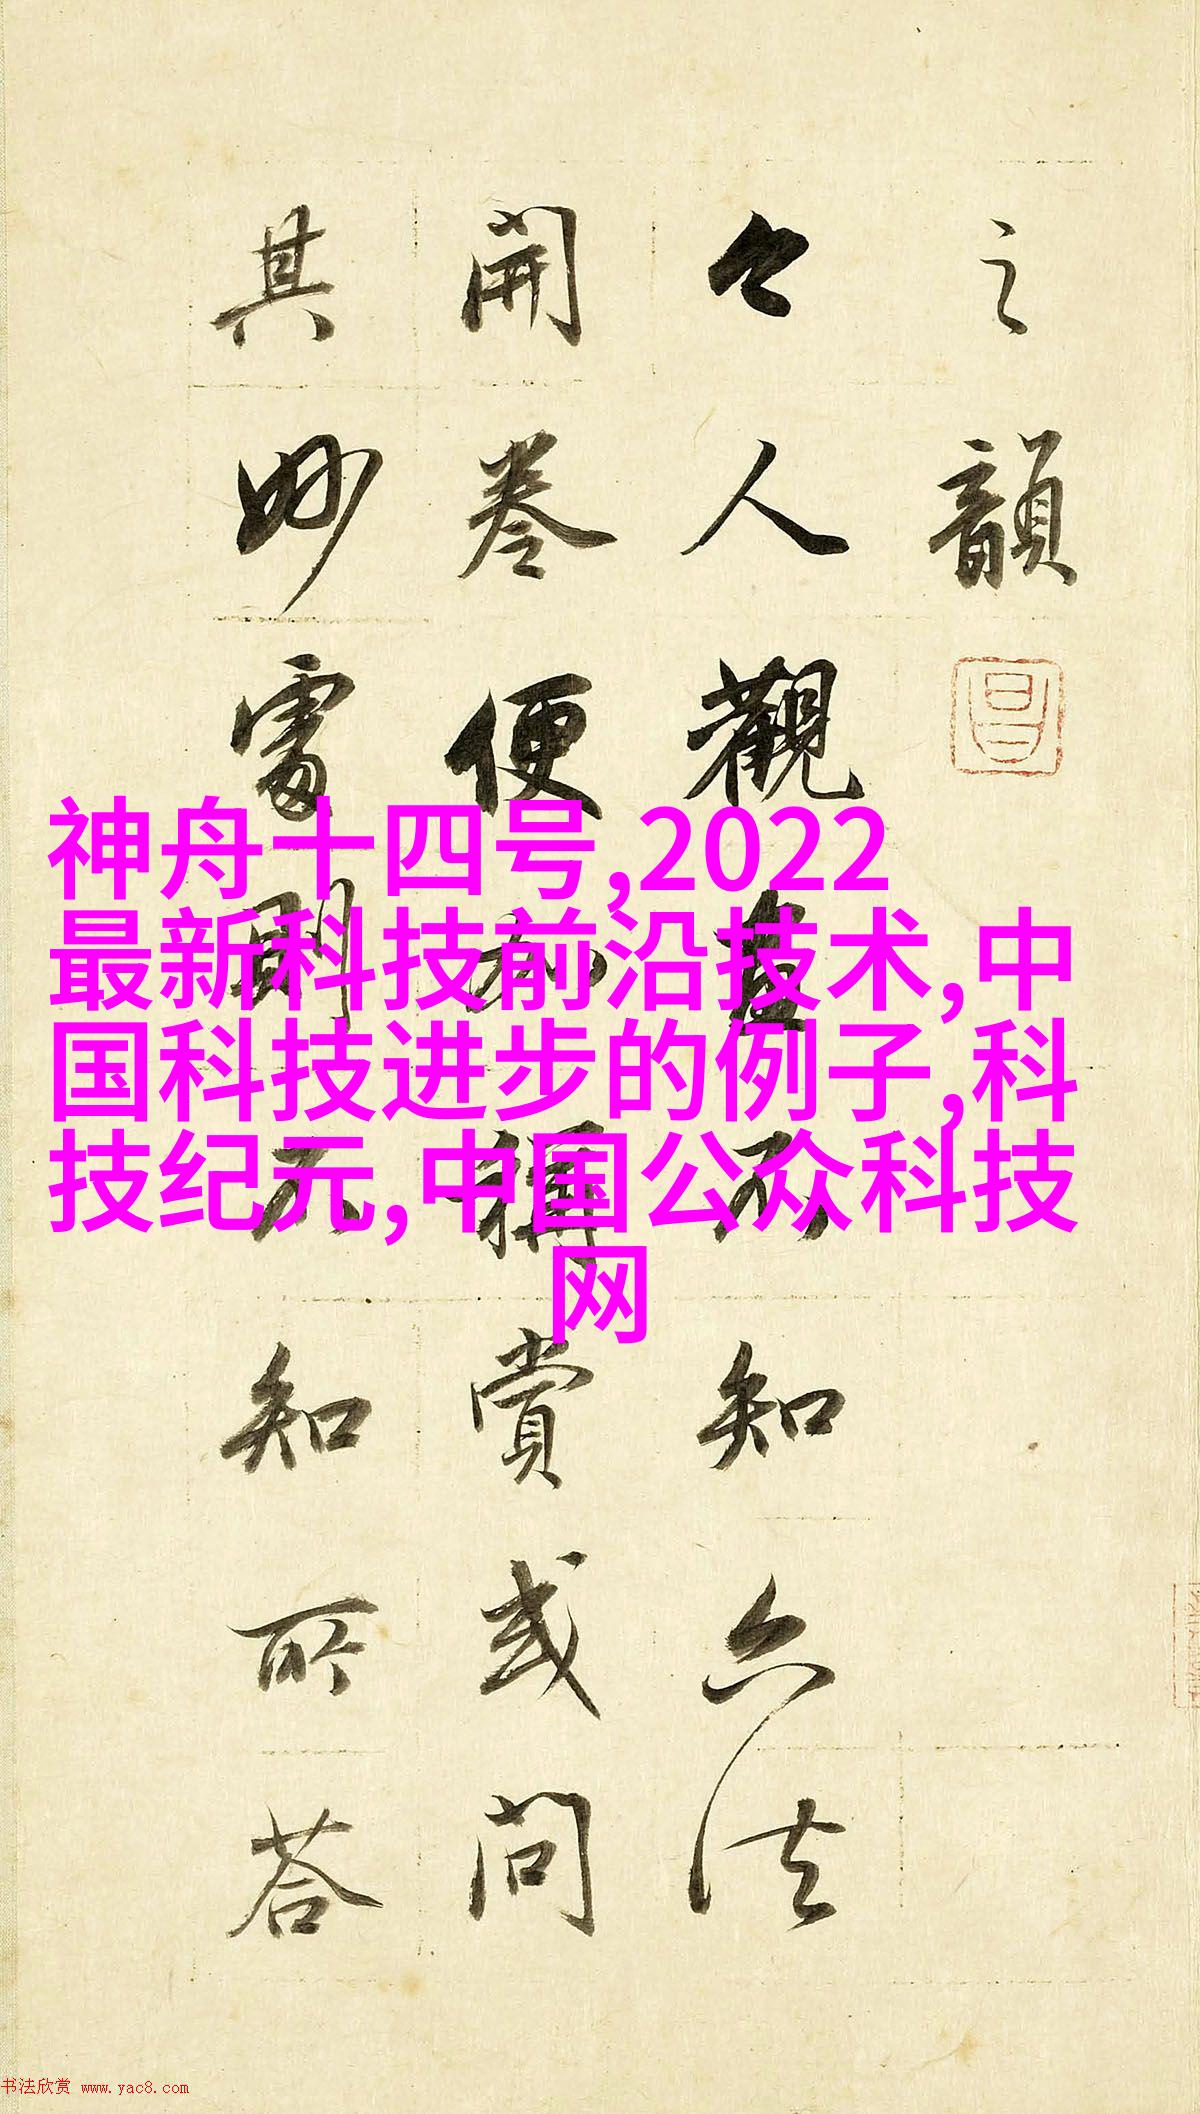 之韻
今人觀畫不知六法
開卷便加稱賞或問
其妙處則不知所荅
神舟十四号,2022
最新科技前沿技术,中
国科技进步的例子,科
技纪元,中国公众科技
网
书法欣赏 www.yac8.com